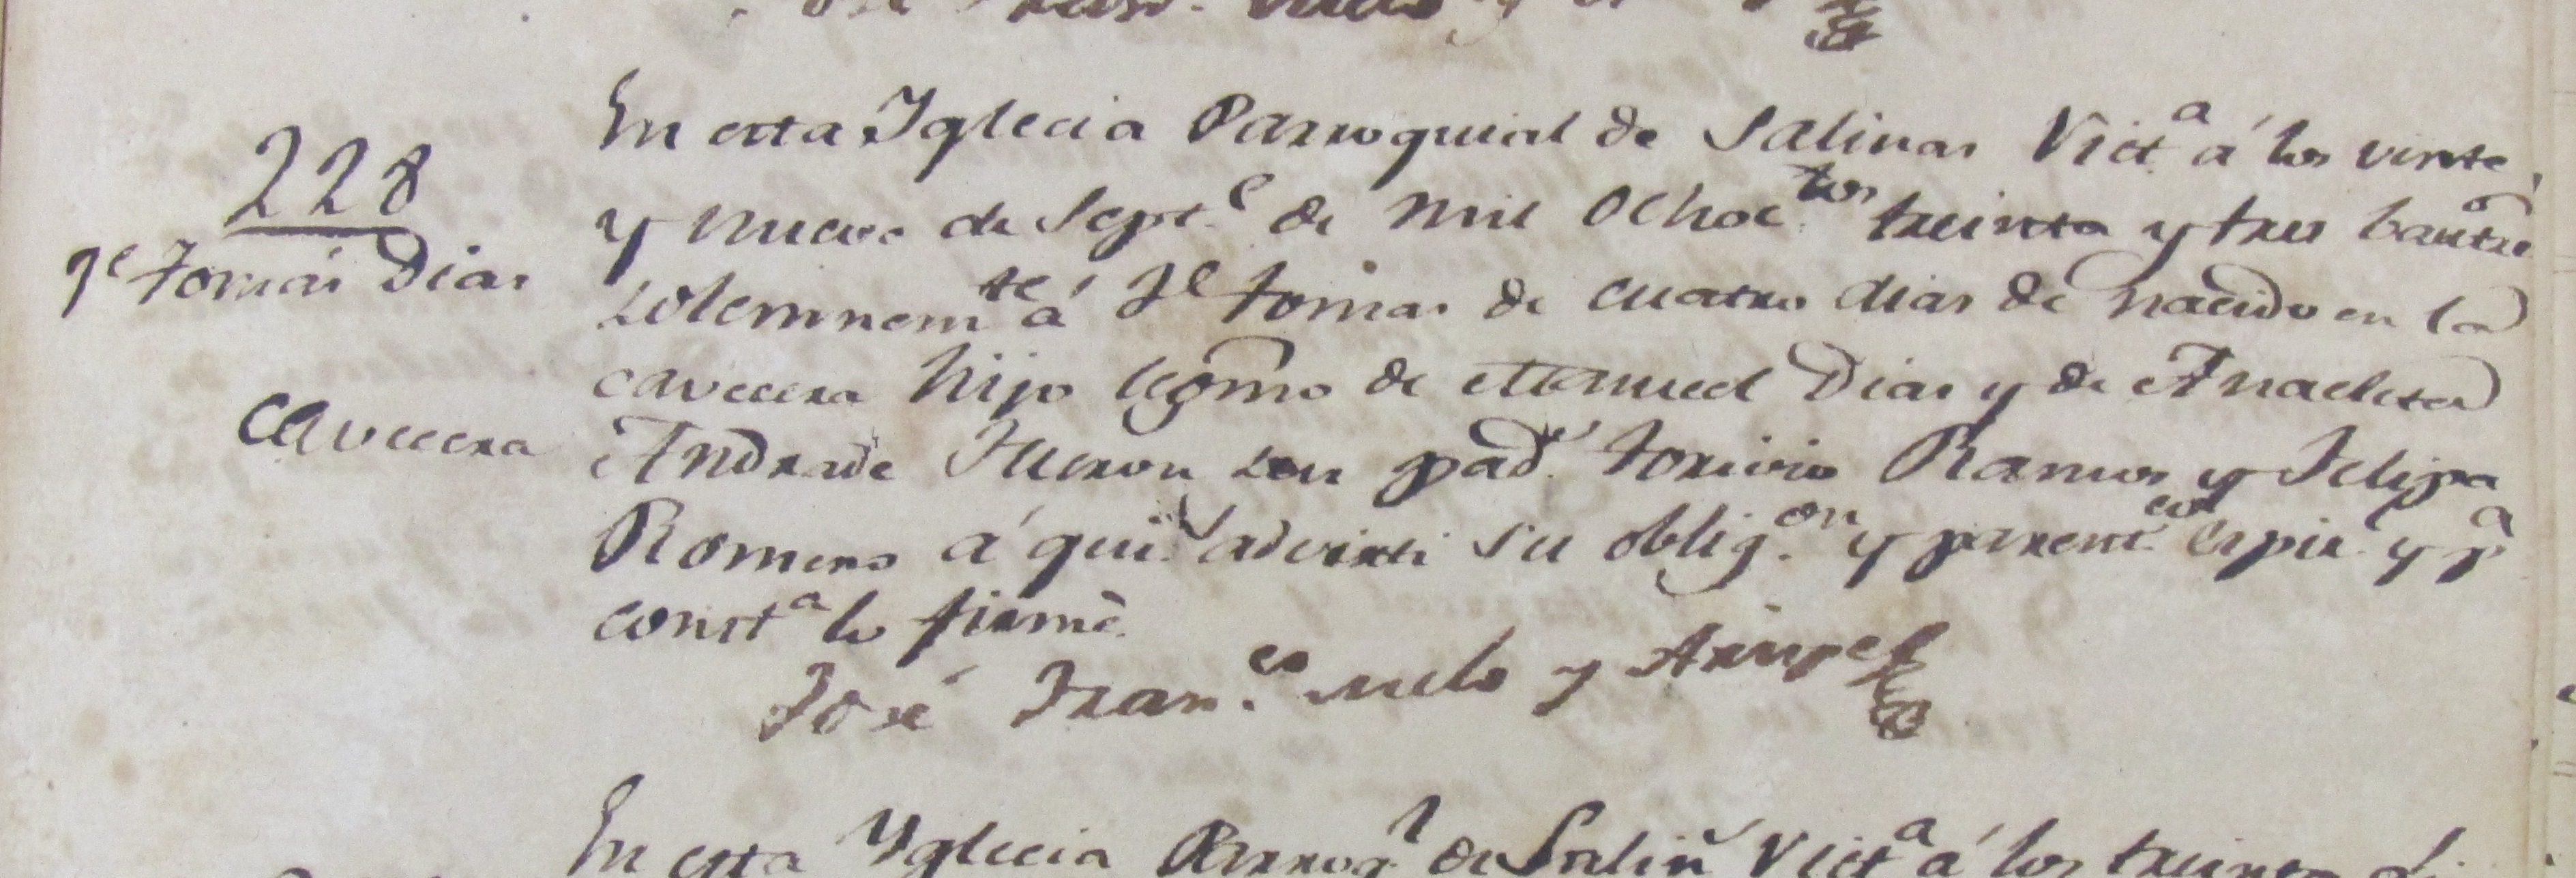 228
Je Tomás Dias
Cavecera
En esta Yglecia Parroquial de Salinas Victa á los veinte
y nueve de Septe de mil Ochoctos treinta y tres bautze
solemnemte á Je Tomas de cuatro dias de nacido en la
cavecera hijo legmo de Manuel Dias y de Anacleta
Andrade Fueron sus pads Torivio Ramos y Felipa
Romero á quis adverti su obligon y parentco espirl y pa
consta lo firmé.
José Franco Melo y
En esta Yglecia Parroql de Salins Victa á los treinta